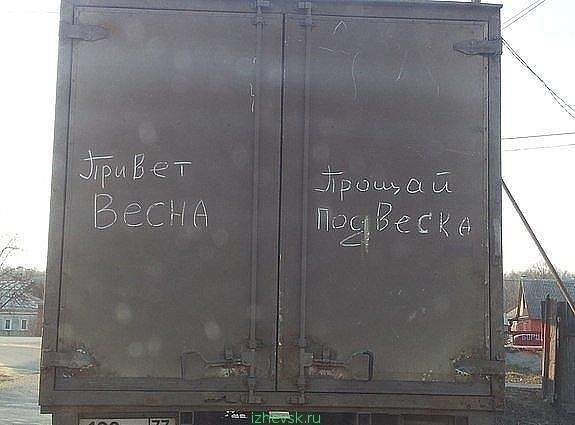 Привет
ВЕСНА
Прощай
ПодВеска
izhevsk.ru
77